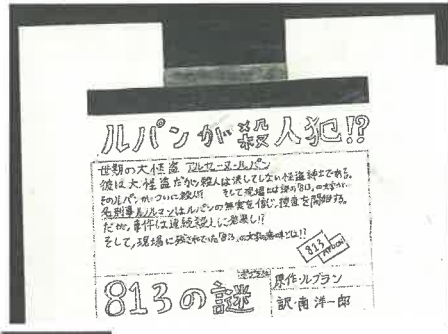 ルパンが殺人犯!?
世期の大怪盗 アルセーヌ・ルパン
彼は大怪盗だが殺人は決してしない怪盗紳士である。
そのルパンがついに殺人!? そして現場には謎の「813」の文字が…
名刑事ルノルマンはルパンの無実を信じ、捜査を開始する。
だが、事件は連続殺人に発展し!?
そして、現場に残されていた「813」の文字の意味とは!!
813
813の謎
原作・ルブラン
訳・南 洋一郎